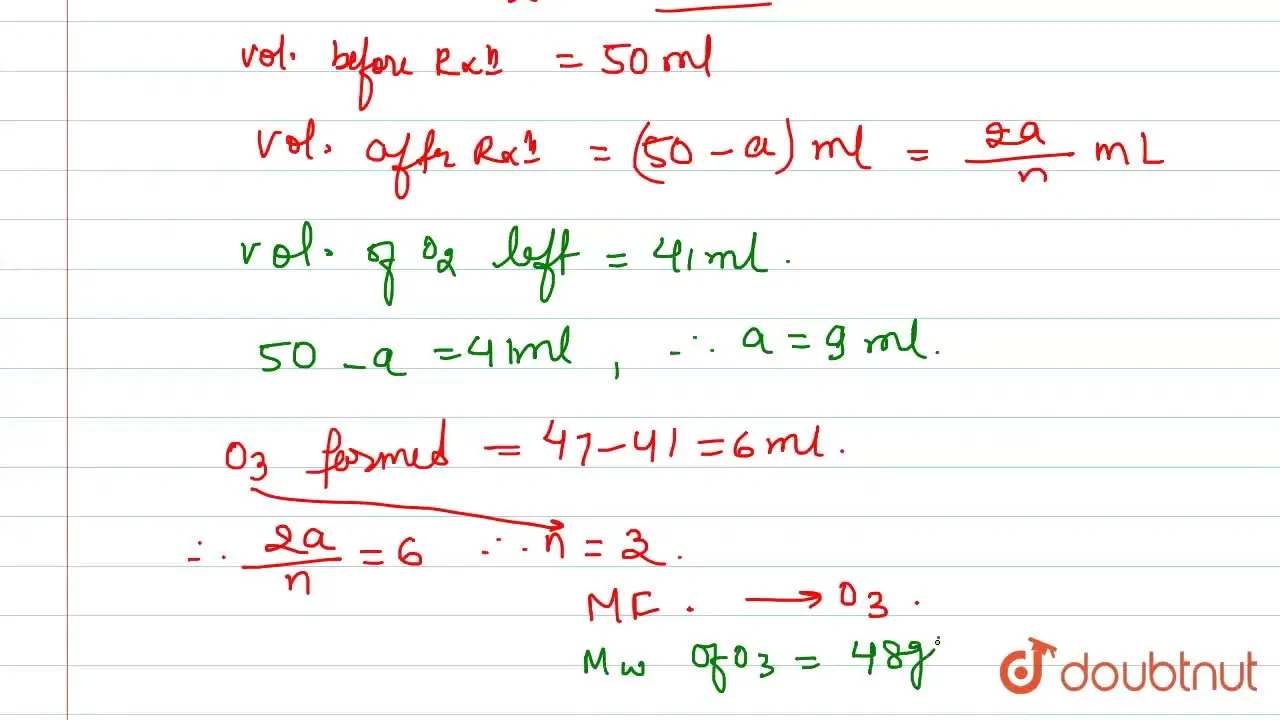 vol. before Rxn = 50 ml
vol. after Rxn = (50 - a) ml = 2a/n mL
vol. of O2 left = 41 ml.
50 - a = 41ml, ∴ a = 9 ml.
O3 formed = 47 - 41 = 6 ml.
∴ 2a/n = 6 ∴ n = 3.
MF. → O3.
Mw of O3 = 48g
doubtnut